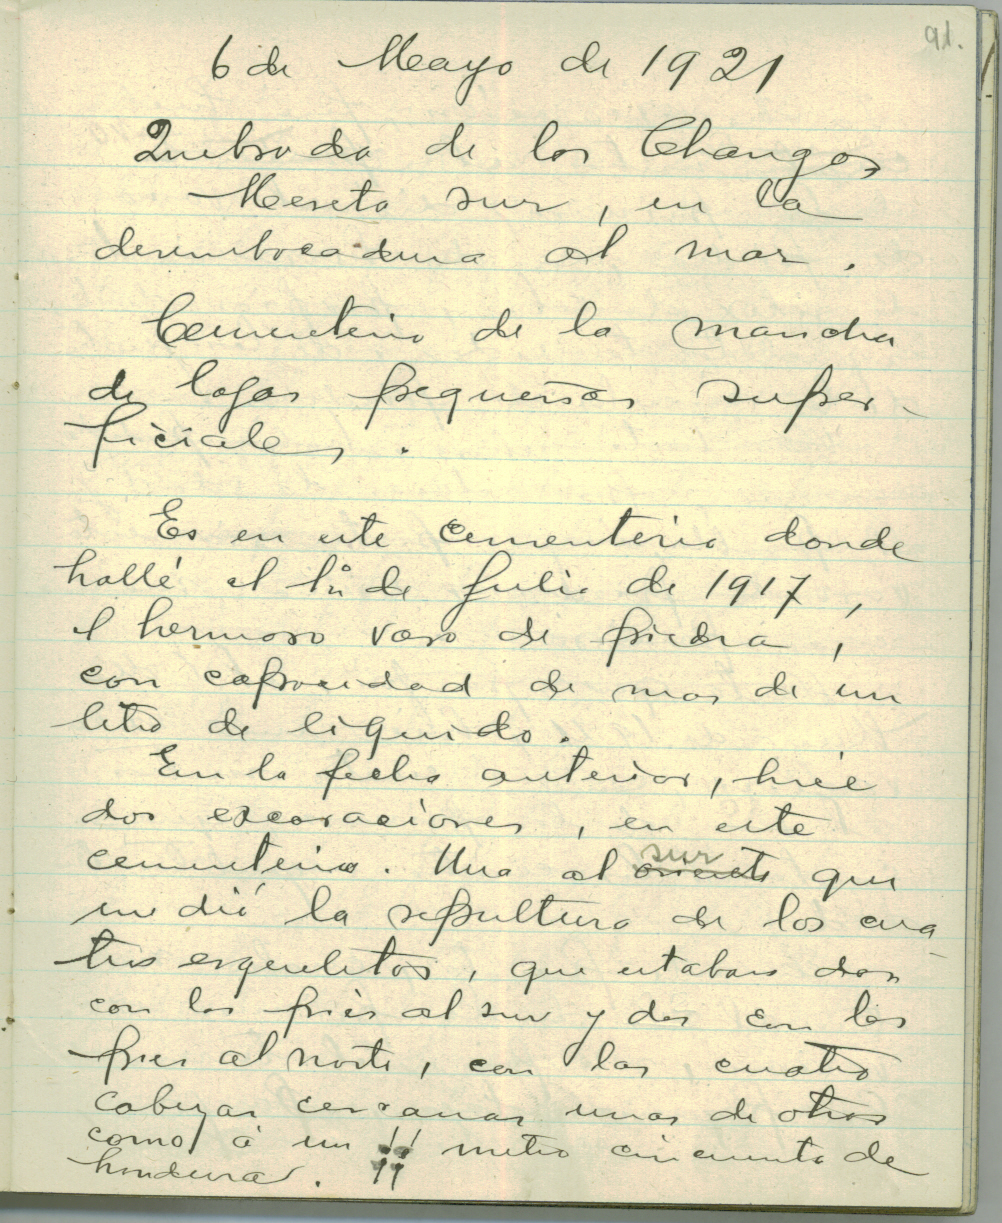 91.
6 de Mayo de 1921
Quebrada de los Changos
Meseta sur, en la
desembocadura al mar.
Cementerio de la mancha
de lajas pequeñas super-
ficiales.
Es en este cementerio donde
hallé el 1º de Julio de 1917,
el hermoso vaso de piedra,
con capacidad de mas de un
litro de liquido.
En la fecha anterior, hice
dos excavaciones, en este
cementerio. Una al oriente sur que
me dió la sepultura de los cua-
tro esqueletos, que estaban dos
con los pies al sur y dos con los
pies al norte, con las cuatro
cabezas cercanas unas de otras
como á un metro cincuenta de
hondura.